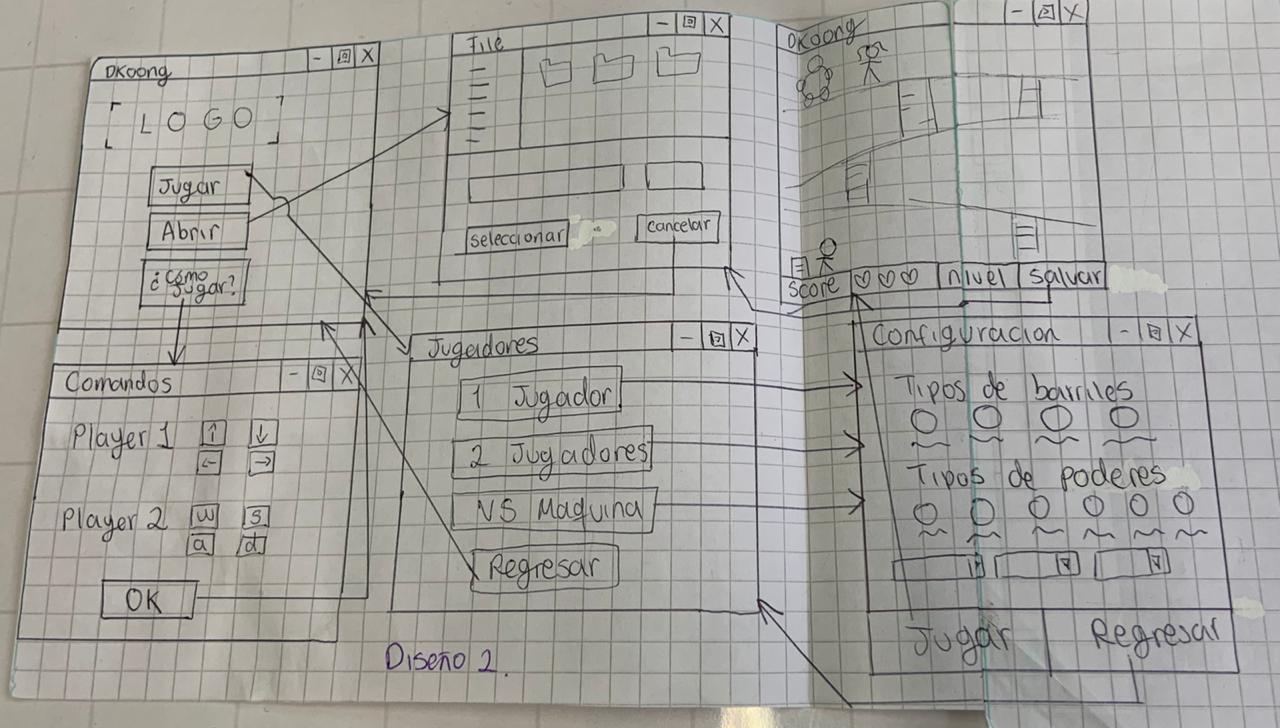 DKoong
- X
LOGO
Jugar
Abrir
¿Cómo
Jugar?
File
- X
Seleccionar
Cancelar
DKoong
- X
Score
nivel
Salvar
Comandos
- X
Player 1
↑ ↓
← →
Player 2
w s
a d
OK
Jugadores
- X
1 Jugador
2 Jugadores
VS Maquina
Regresar
Configuracion
- X
Tipos de barriles
Tipos de poderes
Jugar
Regresar
Diseño 2.